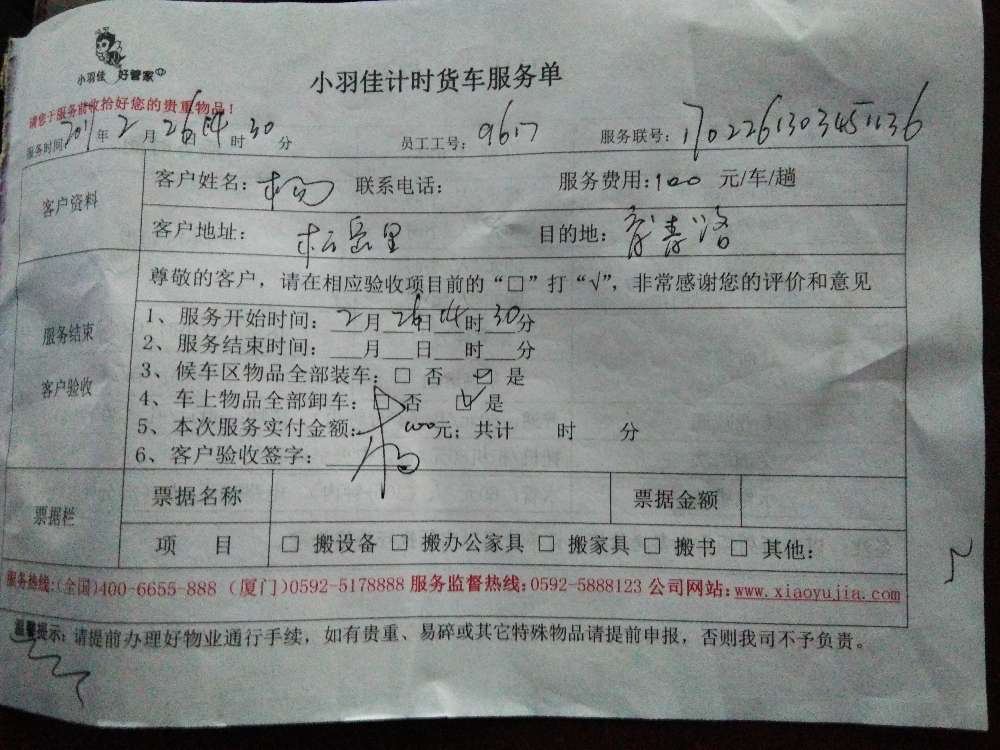 小羽佳 好管家
小羽佳计时货车服务单
请您于服务前收拾好您的贵重物品！
服务时间：2017年2月26日14时30分 员工工号：9617 服务联号：
客户资料
客户姓名：杨 联系电话： 服务费用：100 元/车/趟
客户地址：松岳里 目的地：
服务结束
客户验收
尊敬的客户，请在相应验收项目前的“□”打“√”，非常感谢您的评价和意见
1、服务开始时间：2月26日14时30分
2、服务结束时间：___月___日___时___分
3、候车区物品全部装车：□ 否 ☑ 是
4、车上物品全部卸车：□ 否 ☑ 是
5、本次服务实付金额：100元；共计 时 分
6、客户验收签字：杨
票据栏
票据名称 票据金额
项 目 □ 搬设备 □ 搬办公家具 □ 搬家具 □ 搬书 □ 其他：
服务热线：(全国)400-6655-888 (厦门)0592-5178888 服务监督热线：0592-5888123 公司网站：www.xiaoyujia.com
温馨提示：请提前办理好物业通行手续，如有贵重、易碎或其它特殊物品请提前申报，否则我司不予负责。